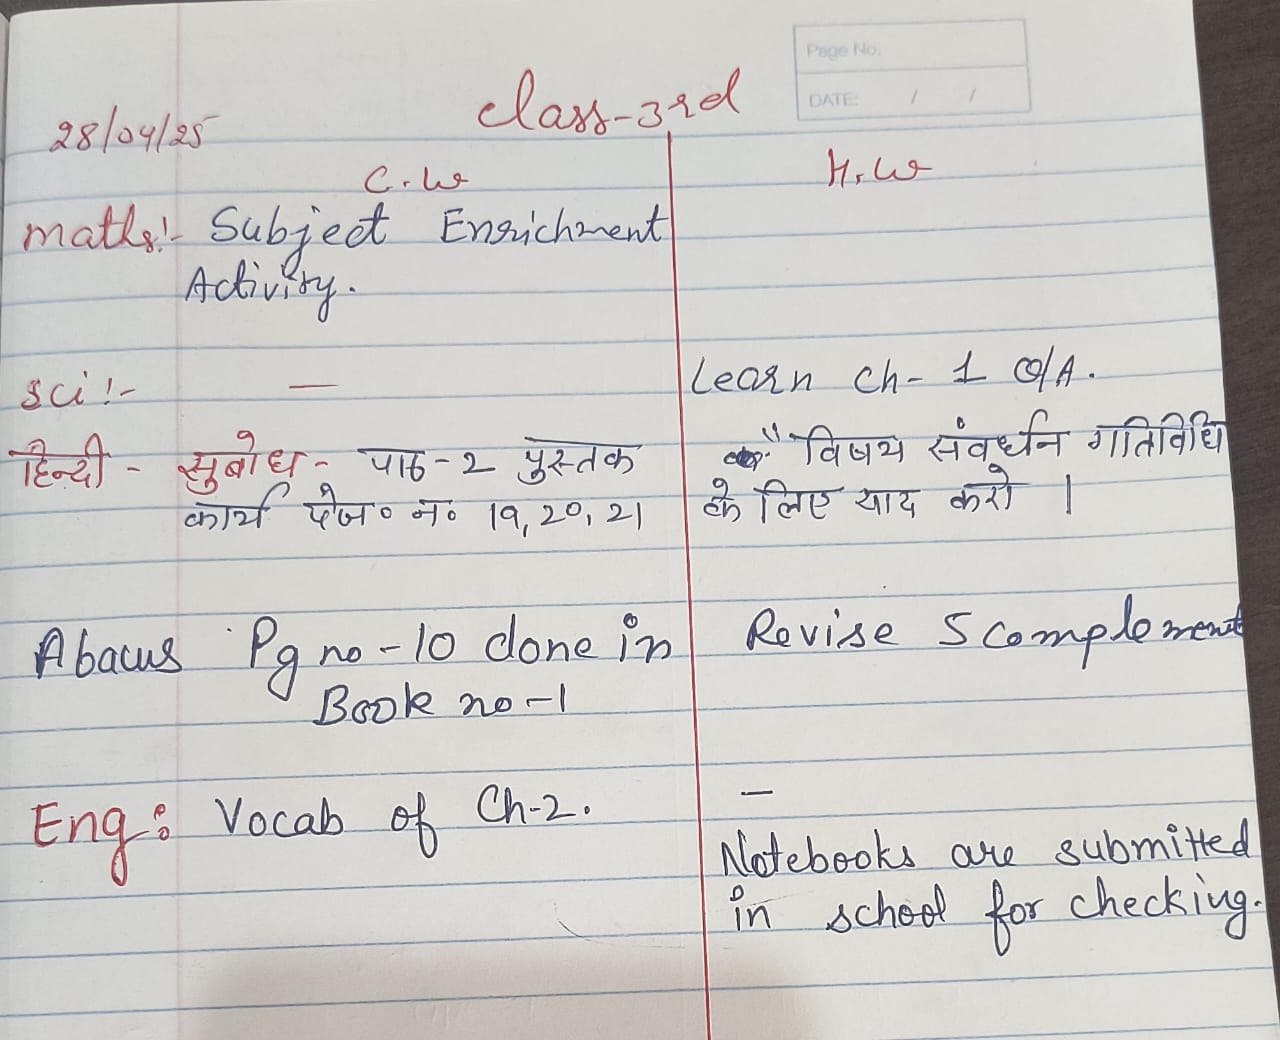 Page No.
DATE: / /
class-3rd
28/04/25
C.W
H.W
maths:- Subject Enrichment
Activity.
sci:- —
Learn ch-1 Q/A.
हिन्दी - सुबोध - पाठ-2 पुस्तक
कार्य पेज० न० 19, 20, 21
" विषय संवर्धन गतिविधि
के लिए याद करो ।
Abacus Pg no-10 done in
Book no-1
Revise 5 complement
Eng: Vocab of Ch-2.
—
Notebooks are submitted
in school for checking.